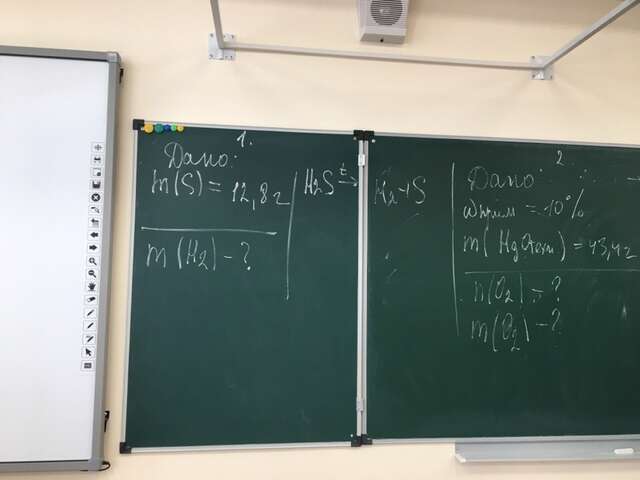 1.
Дано:
m(S) = 12,8г
m(H2) - ?
H2S t→ H2+S
2.
Дано:
ωприм = 10%
m(HgOтехн) = 43,4г
n(O2) = ?
m(O2) - ?